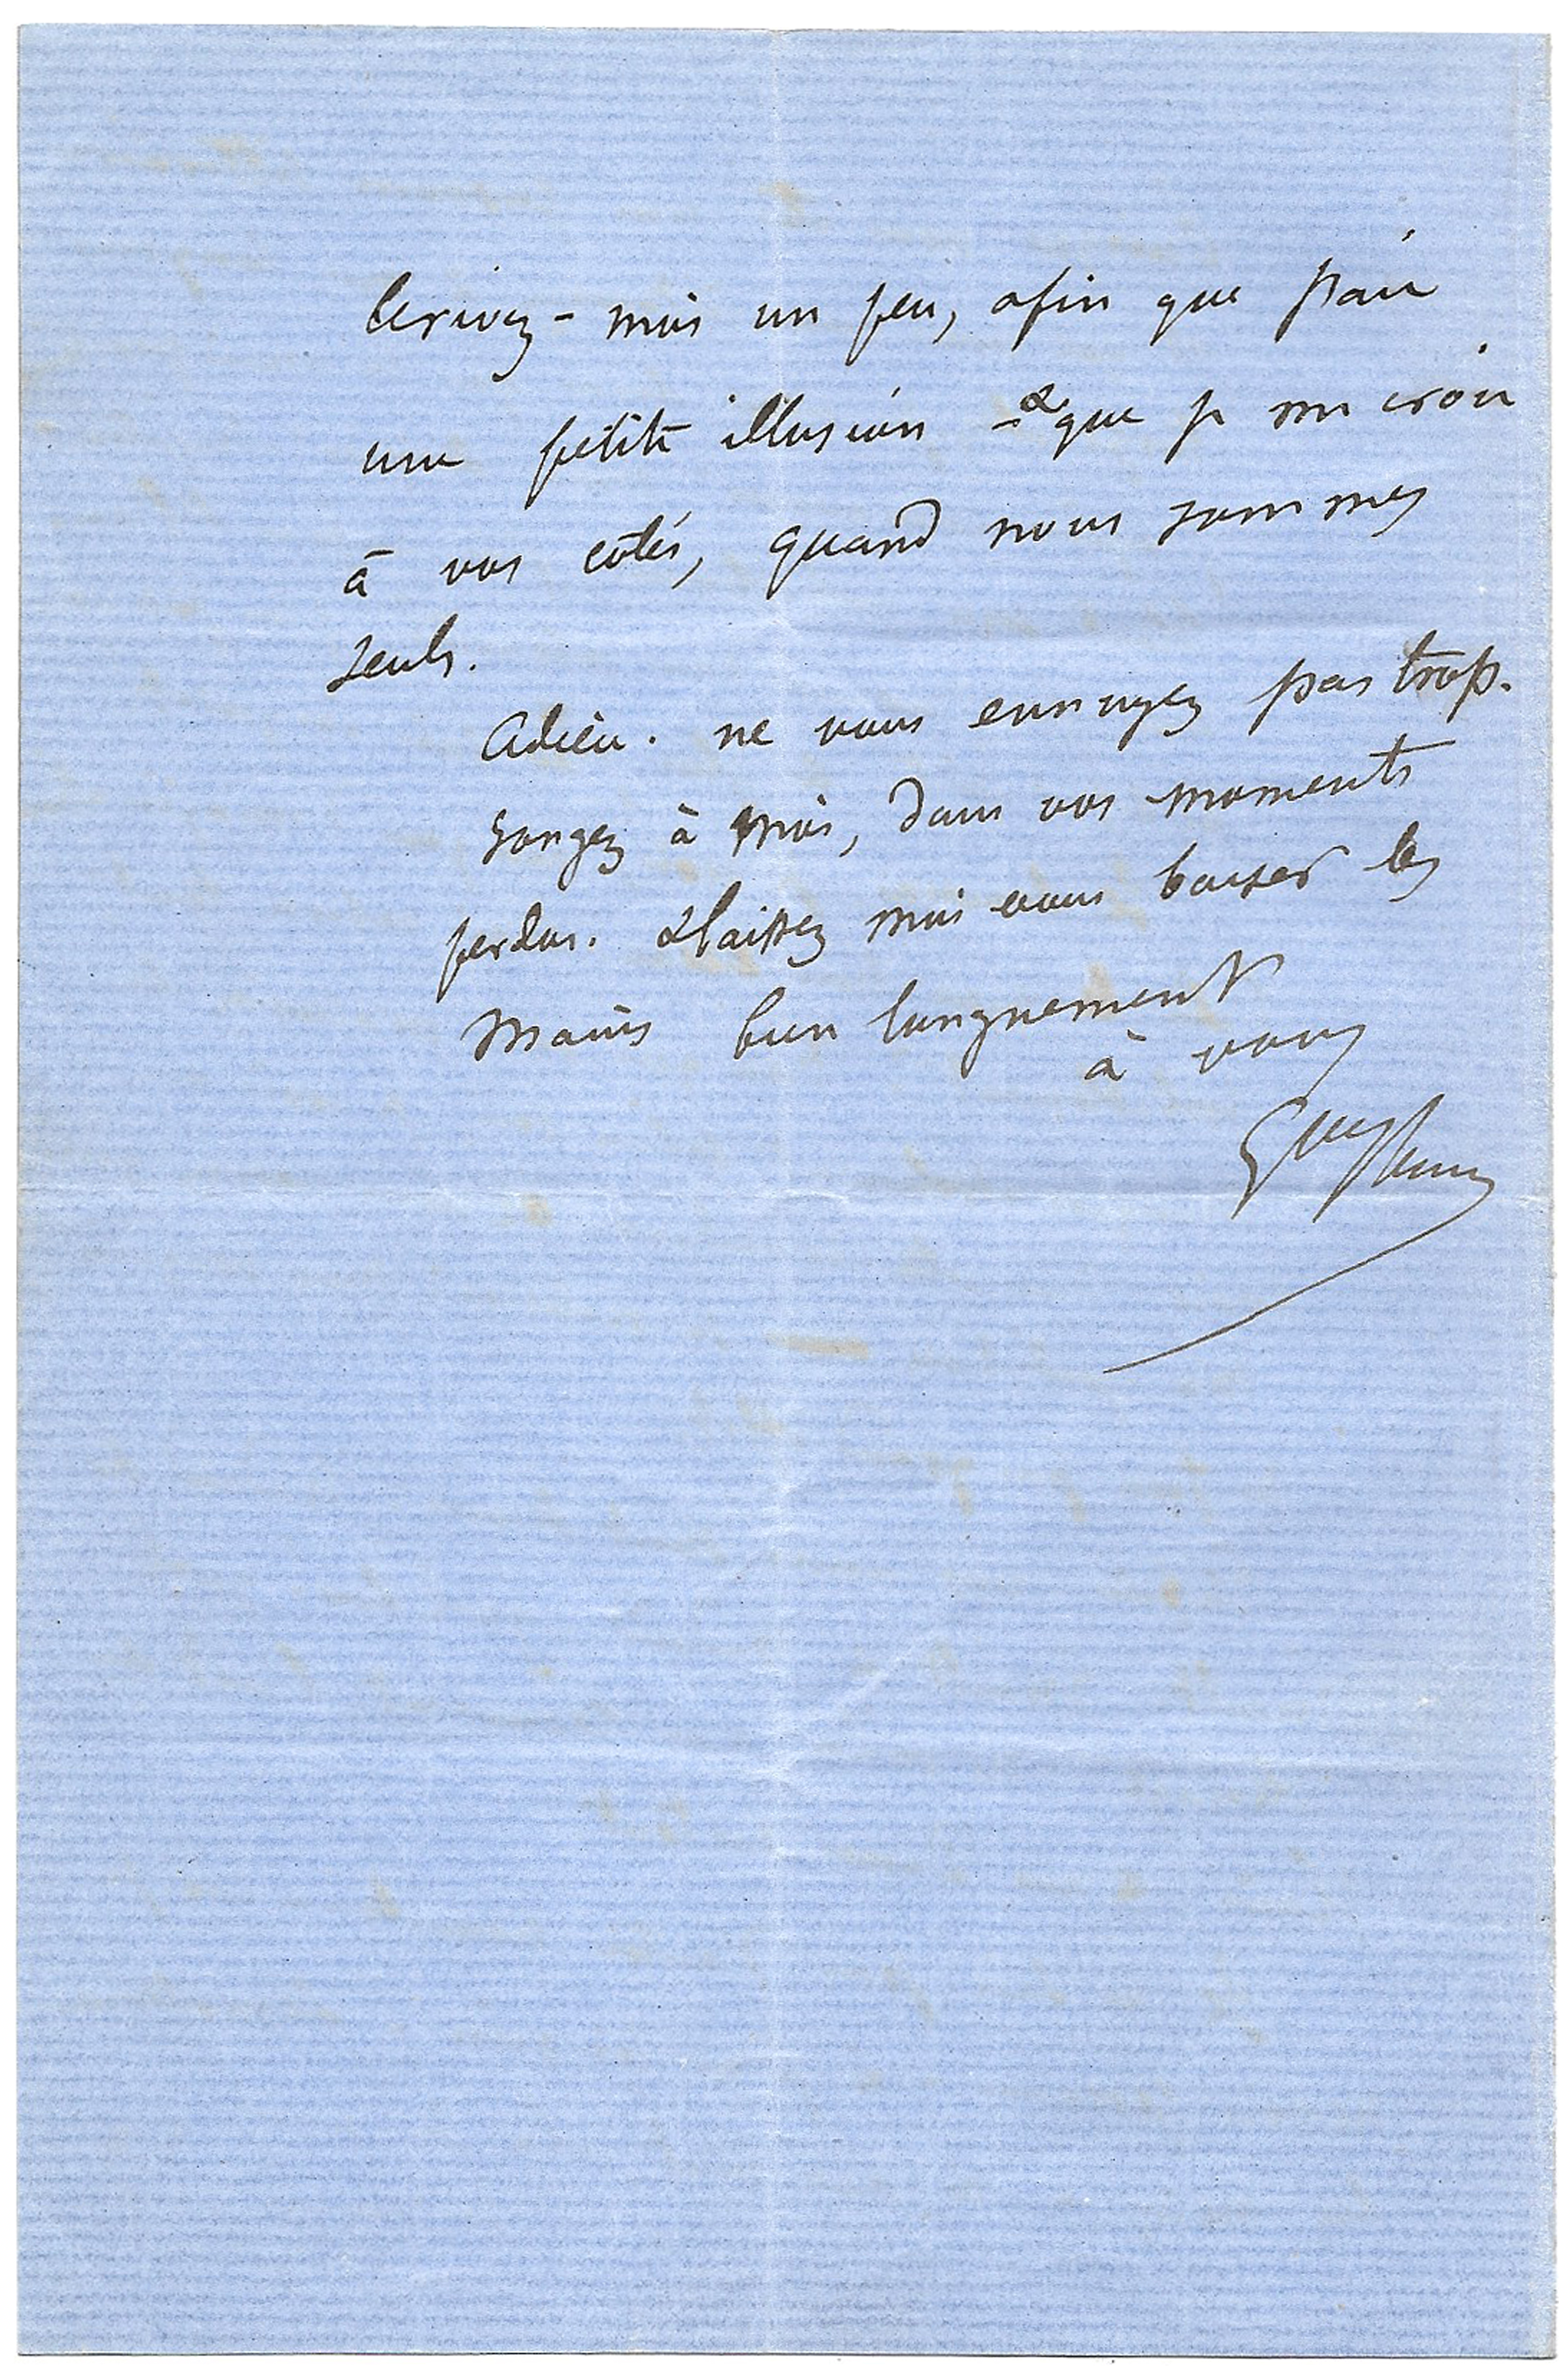 Ecrivez-moi un peu, afin que j'aie
une petite illusion - & que je me croie
à vos côtés, quand nous sommes
seuls.
Adieu. ne vous ennuyez pas trop.
Songez à moi, dans vos moments
perdus. & laissez moi vous baiser les
mains bien longuement
à vous